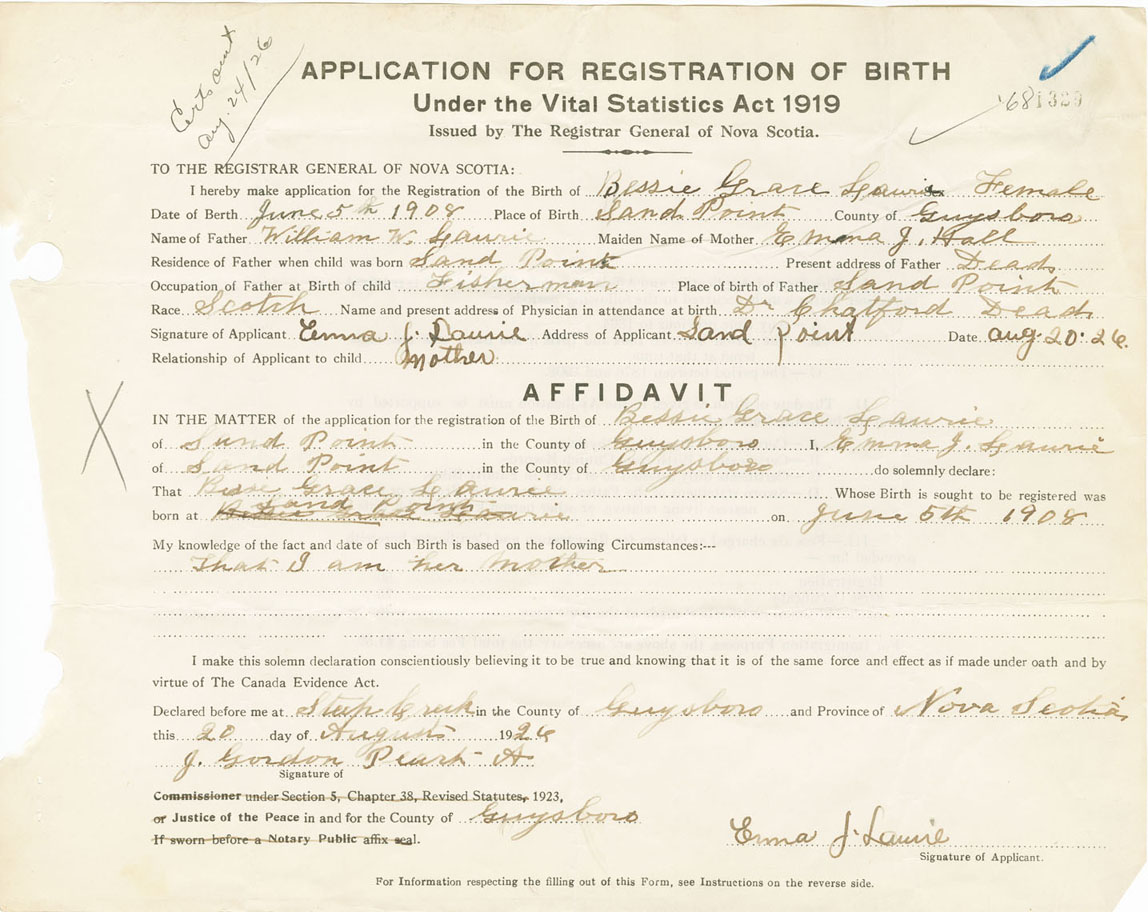 Certs out
Aug. 24/26
APPLICATION FOR REGISTRATION OF BIRTH
Under the Vital Statistics Act 1919
Issued by The Registrar General of Nova Scotia.
681329
TO THE REGISTRAR GENERAL OF NOVA SCOTIA:
I hereby make application for the Registration of the Birth of Bessie Grace Laurie Sex Female
Date of Berth June 5th 1908 Place of Birth Sand Point County of Guysboro
Name of Father William W. Laurie Maiden Name of Mother Emma J. Hall
Residence of Father when child was born Sand Point Present address of Father Dead
Occupation of Father at Birth of child Fisherman Place of birth of Father Sand Point
Race Scotch Name and present address of Physician in attendance at birth Dr Chatford Dead
Signature of Applicant Emma J. Laurie Address of Applicant Sand Point Date Aug. 20. 26.
Relationship of Applicant to child Mother
AFFIDAVIT
IN THE MATTER of the application for the registration of the Birth of Bessie Grace Laurie
of Sand Point in the County of Guysboro I, Emma J. Laurie
of Sand Point in the County of Guysboro do solemnly declare:
That Bessie Grace Laurie Whose Birth is sought to be registered was
born at Bessie Grace Laurie Sand Point on June 5th 1908
My knowledge of the fact and date of such Birth is based on the following Circumstances:---
That I am her mother
I make this solemn declaration conscientiously believing it to be true and knowing that it is of the same force and effect as if made under oath and by
virtue of The Canada Evidence Act.
Declared before me at Steep Creek in the County of Guysboro and Province of Nova Scotia
this 20 day of August 1926
J. Gordon Peart
Signature of
Commissioner under Section 5, Chapter 38, Revised Statutes, 1923,
or Justice of the Peace in and for the County of Guysboro
If sworn before a Notary Public affix seal.
Emma J. Laurie
Signature of Applicant.
For Information respecting the filling out of this Form, see Instructions on the reverse side.